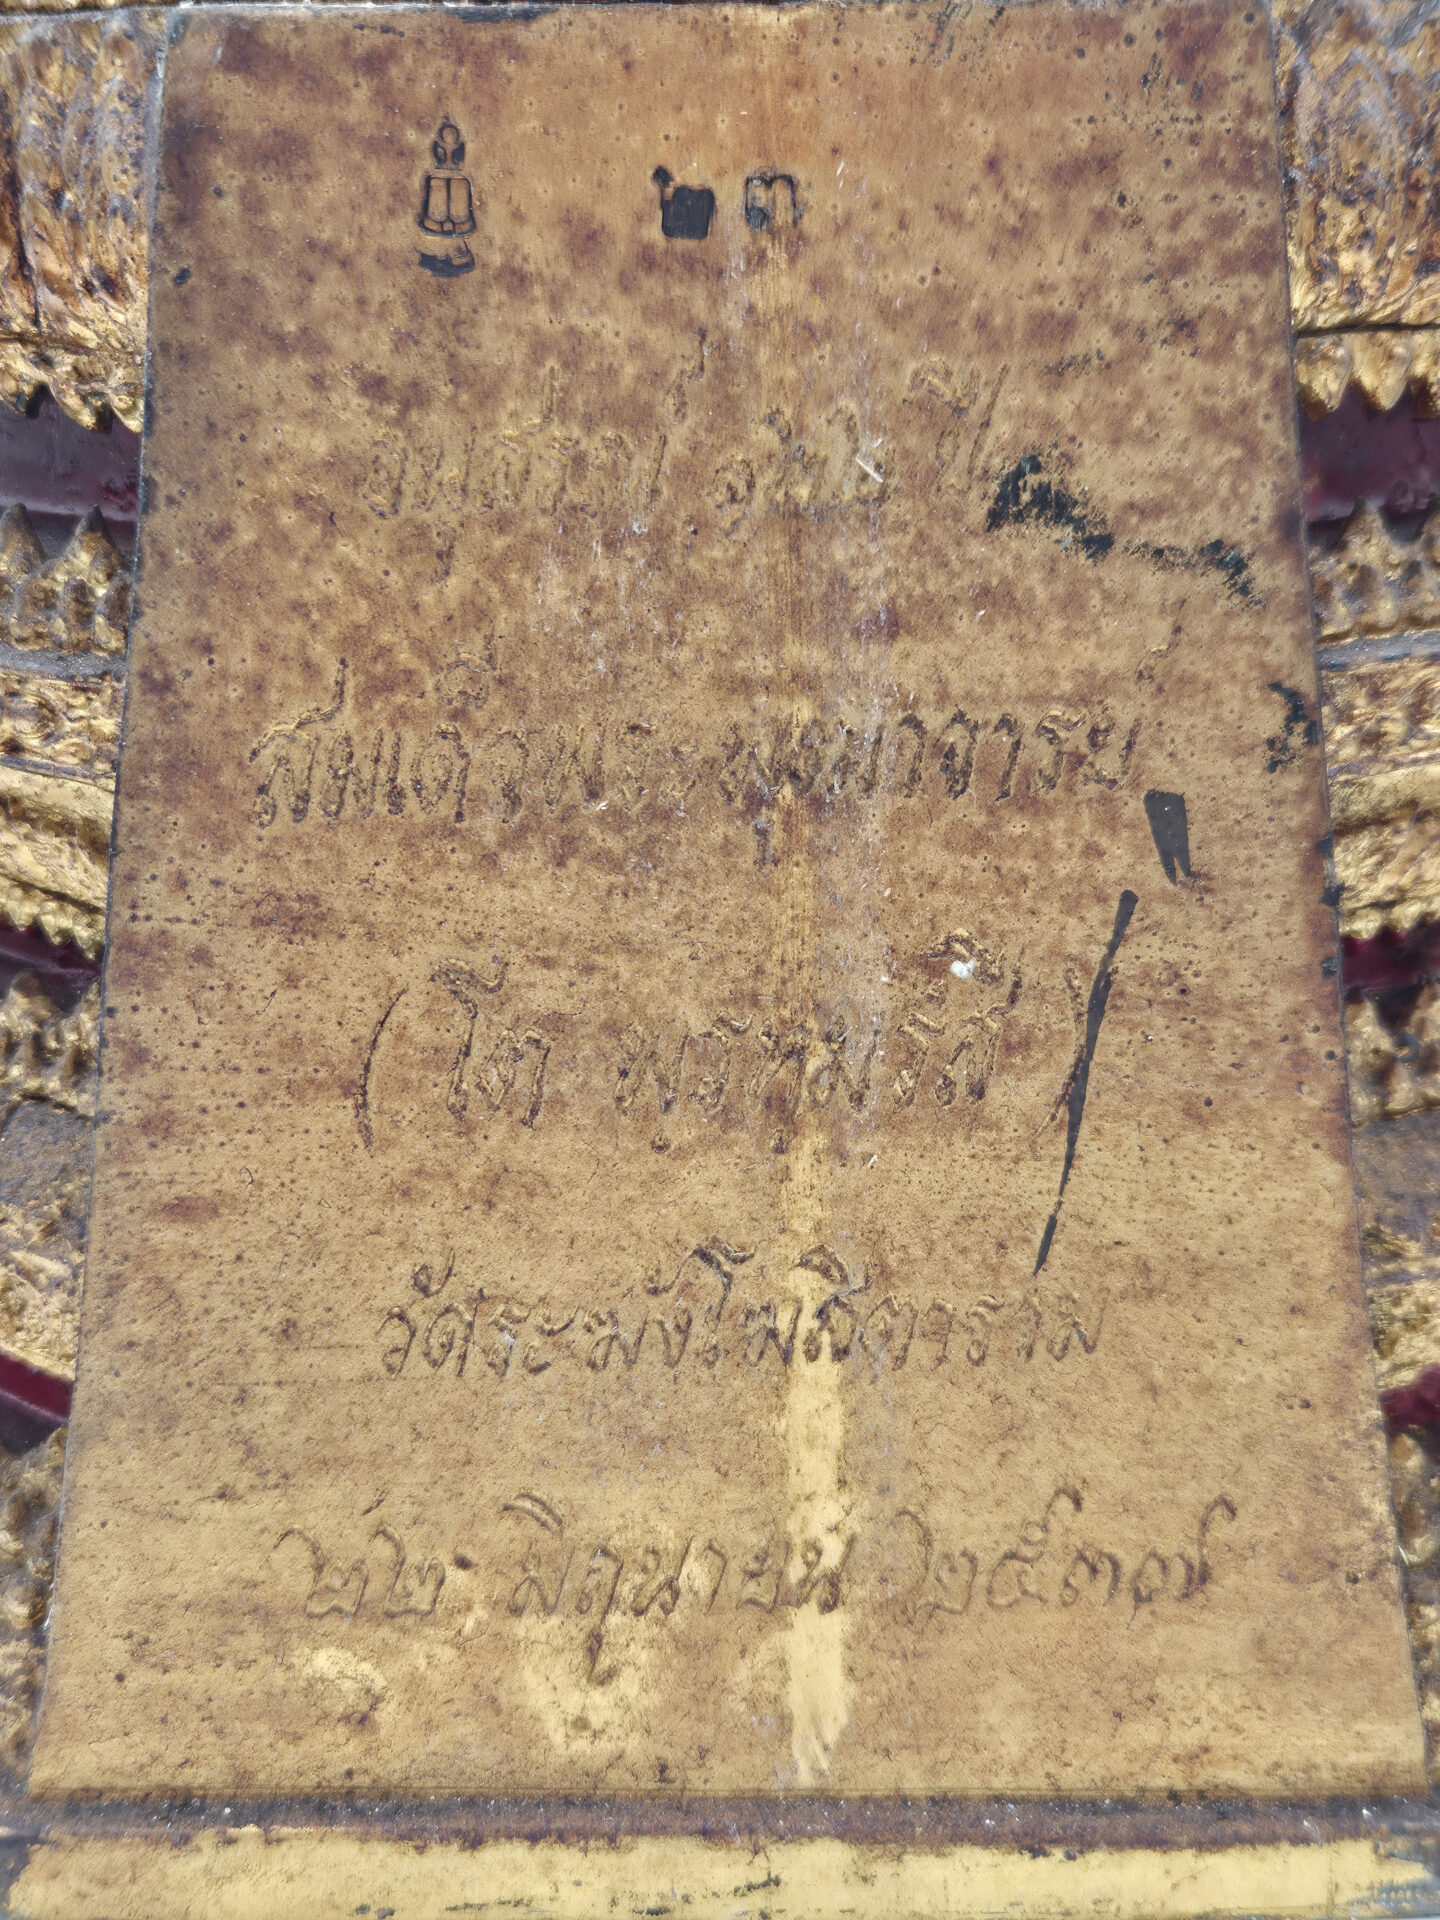 ๒๓
อนุสรณ์ ๑๒๒ ปี
สมเด็จพระพุฒาจารย์
(โต พฺรหฺมรํสี)
วัดระฆังโฆสิตาราม
๒๒ มิถุนายน ๒๕๓๗